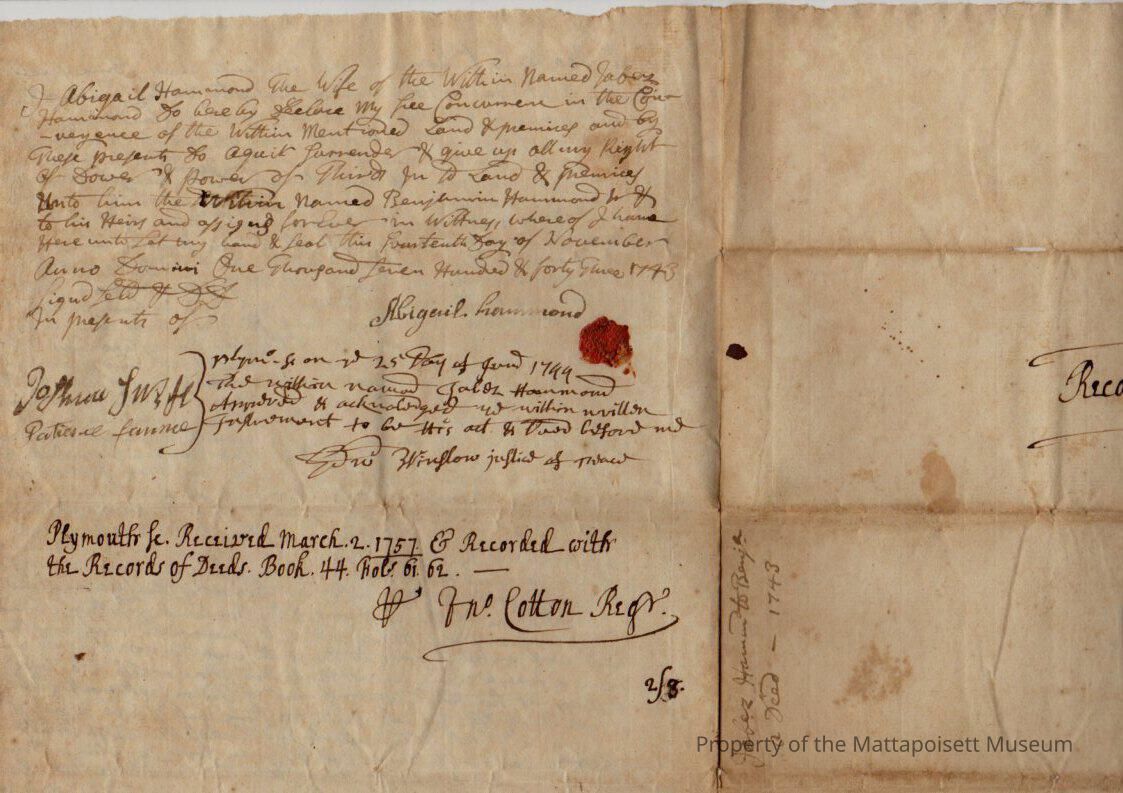 I Abigail Hammond The Wife of the Within Named Jabez
Hammond Do hereby Declare my free Concurrence in the Con
-veyence of the Within Mentioned Land & premises and by
These presents Do aquit Surrender & give up all my Right
of Dower & Power of Thirds In sd Land & Premises
Unto him the Within Named Benjamin Hammond Jr &
to his Heirs and assigns forEver in Wittness whereof I have
Here unto Set my hand & Seal this fourteenth Day of November
Anno Domini One Thousand Seven Hundred & forty Three 1743
Signd Seld & DD
In presents of
Abigail hammond
Plymo: Sc on ye 25 Day of 1744
The within named Jabez Hammond
Appeared & acknoledged ye within written
Instrument to be His act & Deed before me
Edwd Winslow justice of peace
Joshua
Plymouth Sc. Received March. 2. 1757. & Recorded with
the Records of Deeds. Book. 44. Fols. 61. 62. —
Jno. Cotton Regr.
2/8.
Jabez Hamm to Benja.
a Deed — 1743
Reco
Property of the Mattapoisett Museum